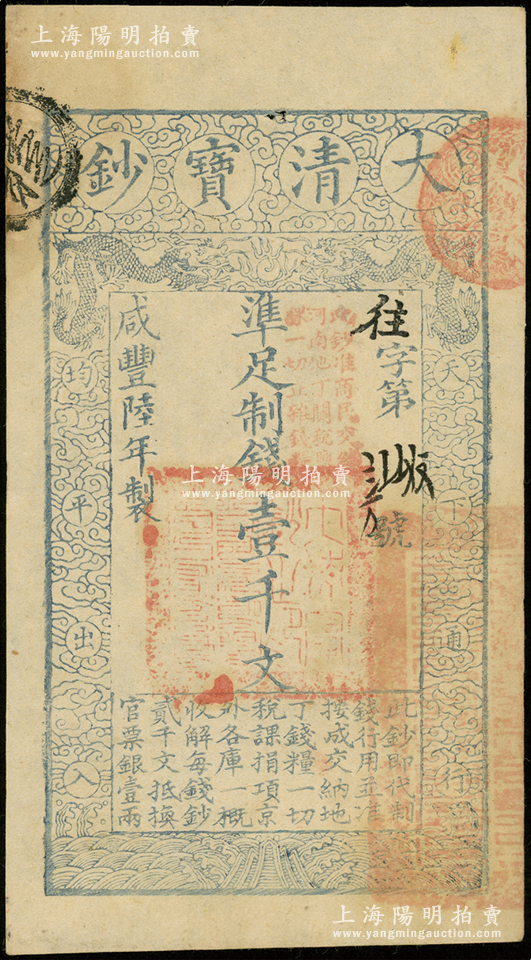 上海陽明拍賣
www.yangmingauction.com
大清寶鈔
天下通行
均平出入
往字第
號
準足制錢壹千文
咸豐陸年製
此鈔即代制
錢行用並准
按成交納地
丁錢糧一切
稅課捐項京
外各庫一概
收解每錢鈔
貳千文抵換
官票銀壹兩
上海陽明拍賣
www.yangmingauction.com
上海陽明拍賣
www.yangmingauction.com